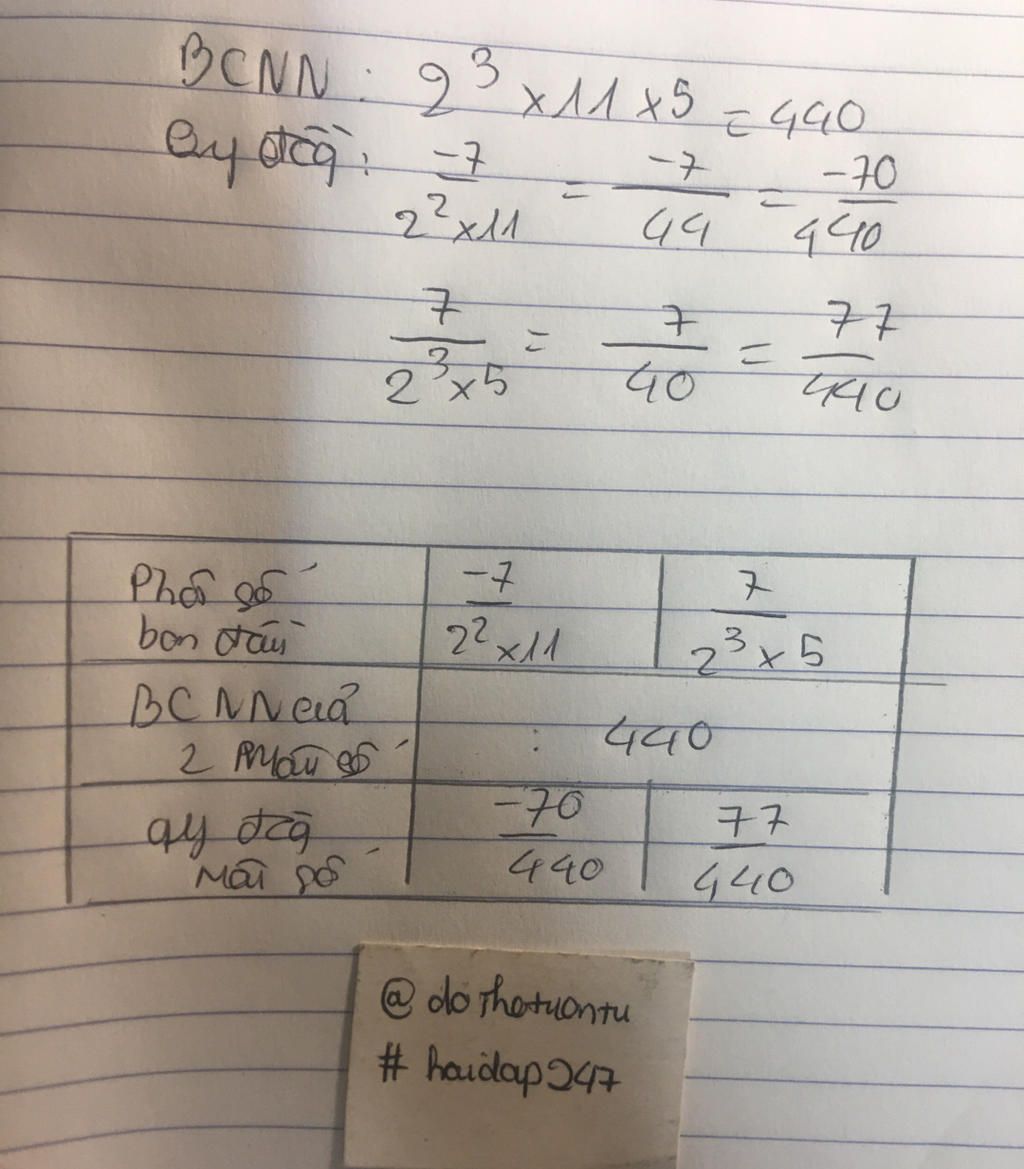 BCNN : 2³ × 11 × 5 = 440
Quy đồg : -7/2² × 11 = -7/44 = -70/440
7/2³ × 5 = 7/40 = 77/440
Phân số ban đầu | -7/2² × 11 | 7/2³ × 5
BCNN của 2 phân số : 440
quy đồg mẫu số | -70/440 | 77/440
@ dothetuantu
# hoidap247